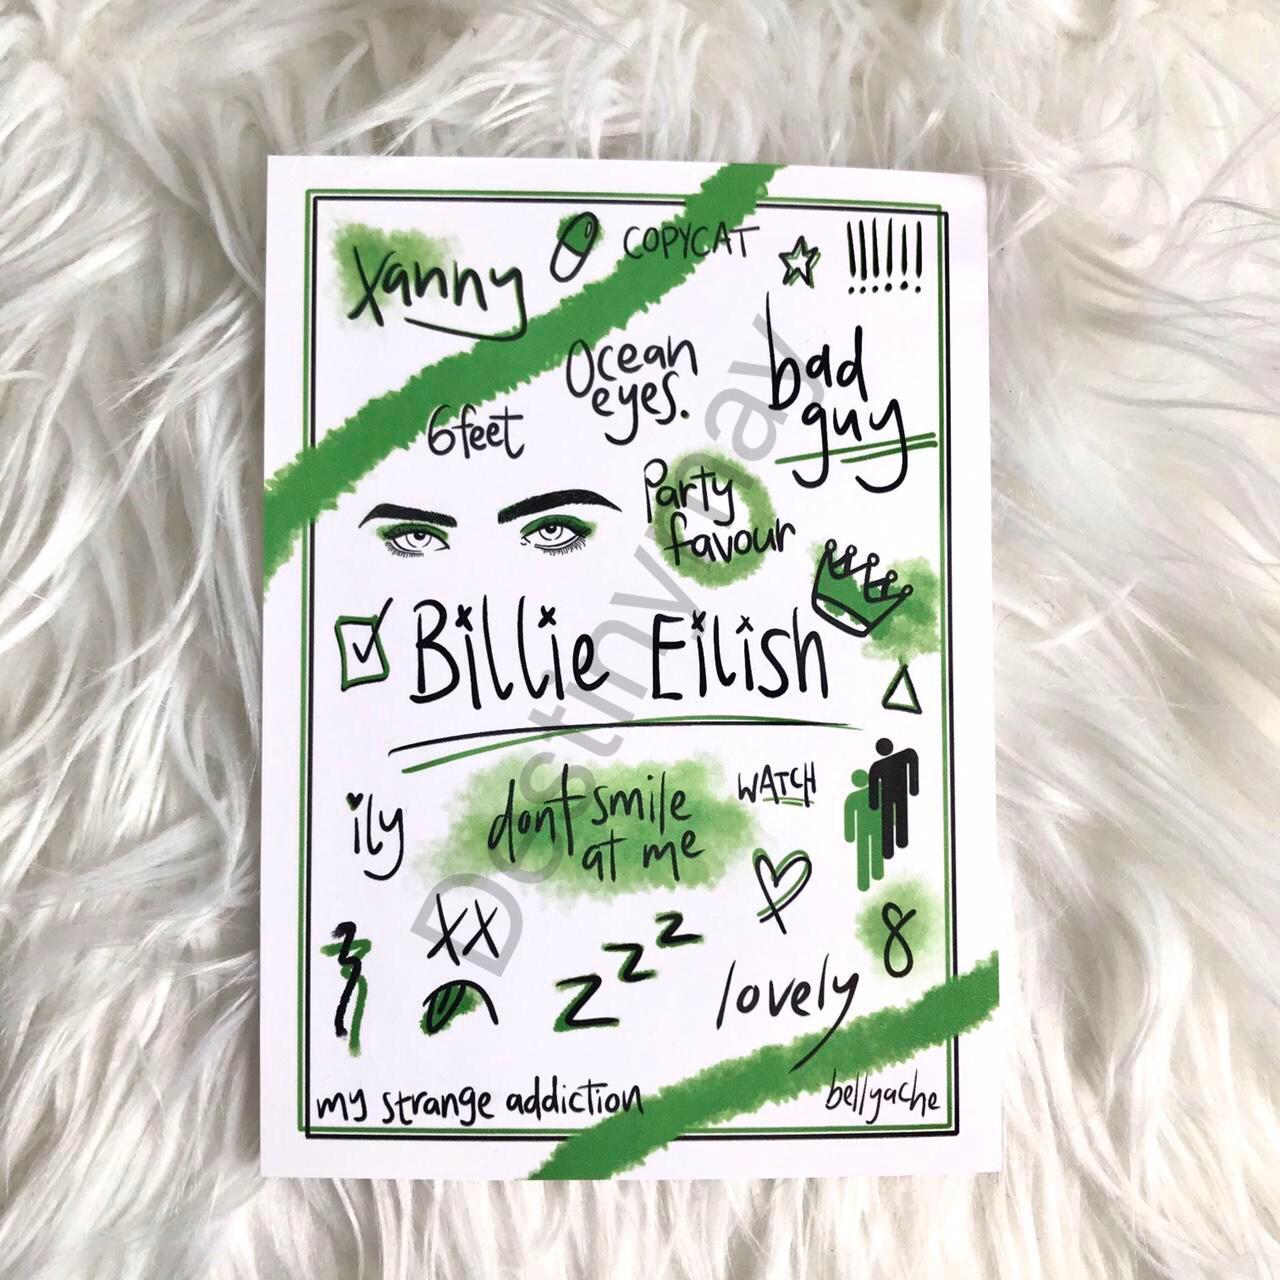 xanny
COPYCAT
!!!!!!
Ocean
eyes.
bad
guy
6feet
Party
favour
Billie Eilish
ily
dont smile
at me
WATCH
XX
8
z z z
lovely
my strange addiction
bellyache
Destinymay